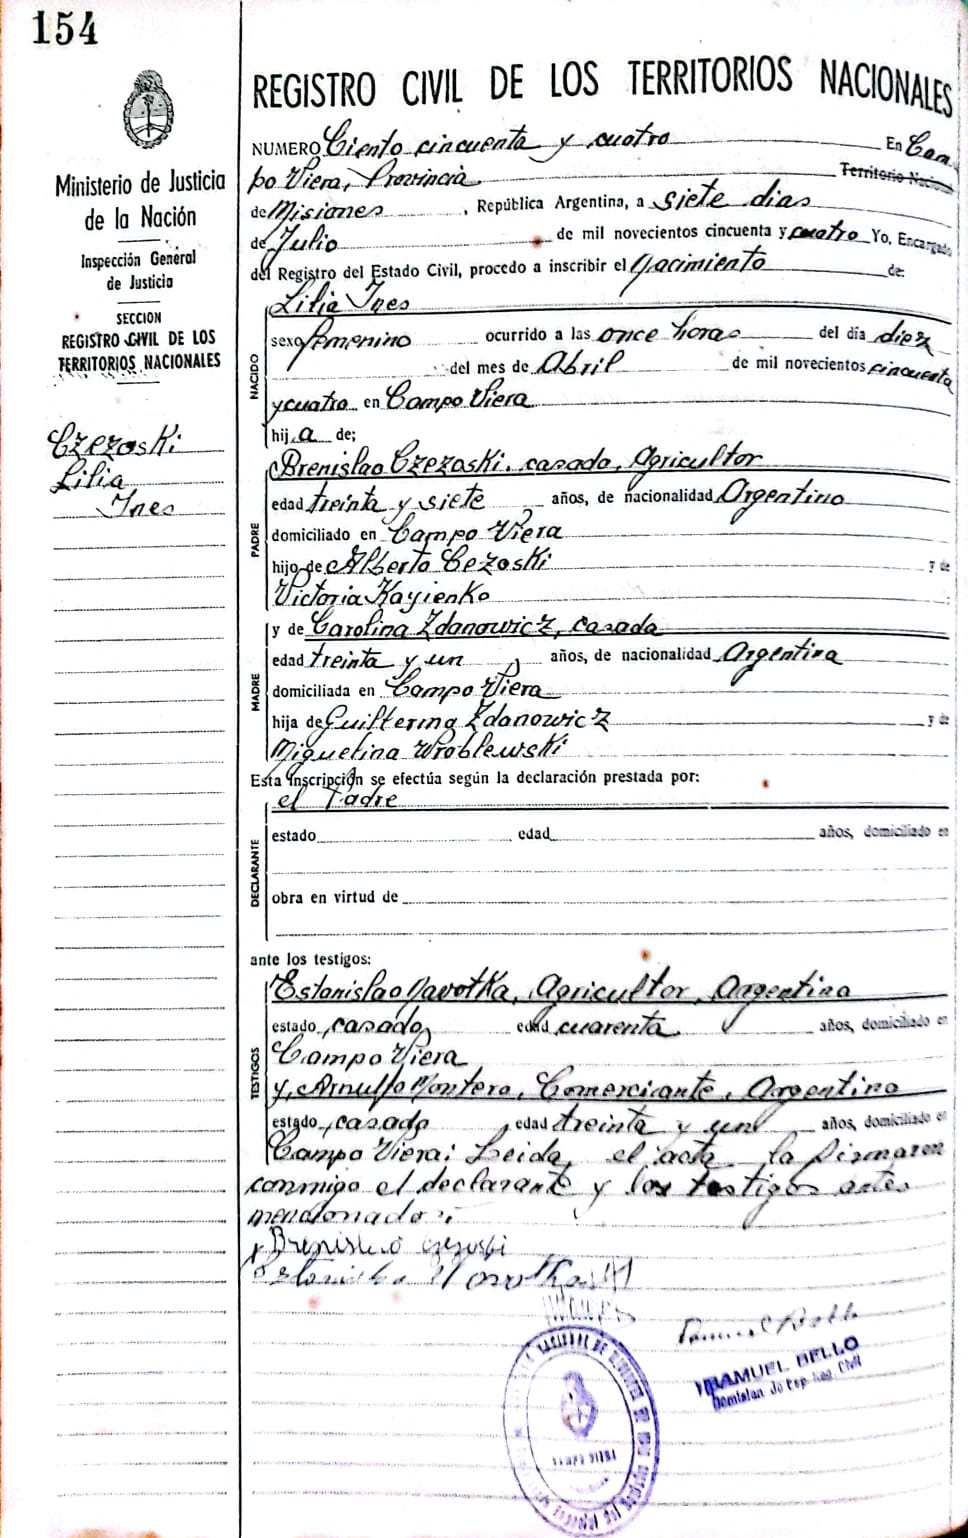 154
Ministerio de Justicia
de la Nación
Inspección General
de Justicia
SECCION
REGISTRO CIVIL DE LOS
TERRITORIOS NACIONALES
Czezoski
Lilia
Ines
REGISTRO CIVIL DE LOS TERRITORIOS NACIONALES
NUMERO Ciento cincuenta y cuatro En Cam
po Viera, Provincia Territorio Nacional
de Misiones, República Argentina, a siete dias
de Julio de mil novecientos cincuenta y cuatro Yo, Encargado
del Registro del Estado Civil, procedo a inscribir el Nacimiento de:
Lilia Ines
NACIDO
sexo femenino ocurrido a las once horas del día diez
del mes de Abril de mil novecientos cincuenta
y cuatro en Campo Viera
hij a de;
PADRE
Brenislao Czezoski. casado, Agricultor
edad treinta y siete años, de nacionalidad Argentino
domiciliado en Campo Viera
hijo de Alberto Cezoski y de
Victoria Kayienko
MADRE
y de Carolina Zdanowicz, casada
edad treinta y un años, de nacionalidad Argentina
domiciliada en Campo Viera
hija de Guillermo Zdanowicz y de
Miguelina Wroblewski
Esta inscripción se efectúa según la declaración prestada por:
el Padre
DECLARANTE
estado edad años, domiciliado en
obra en virtud de
ante los testigos:
TESTIGOS
Estanislao Navotka, Agricultor, Argentino
estado, casado, edad cuarenta años, domiciliado en
Campo Viera
y, Arnulfo Montero, Comerciante, Argentino
estado, casado, edad treinta y un años, domiciliado en
Campo Viera; Leida, el acta la firmaron
conmigo el declarante y los testigos antes
mencionados.
Brenislao Czezoski
Estanislao Navotka
SAMUEL BELLO
CAMPO VIERA